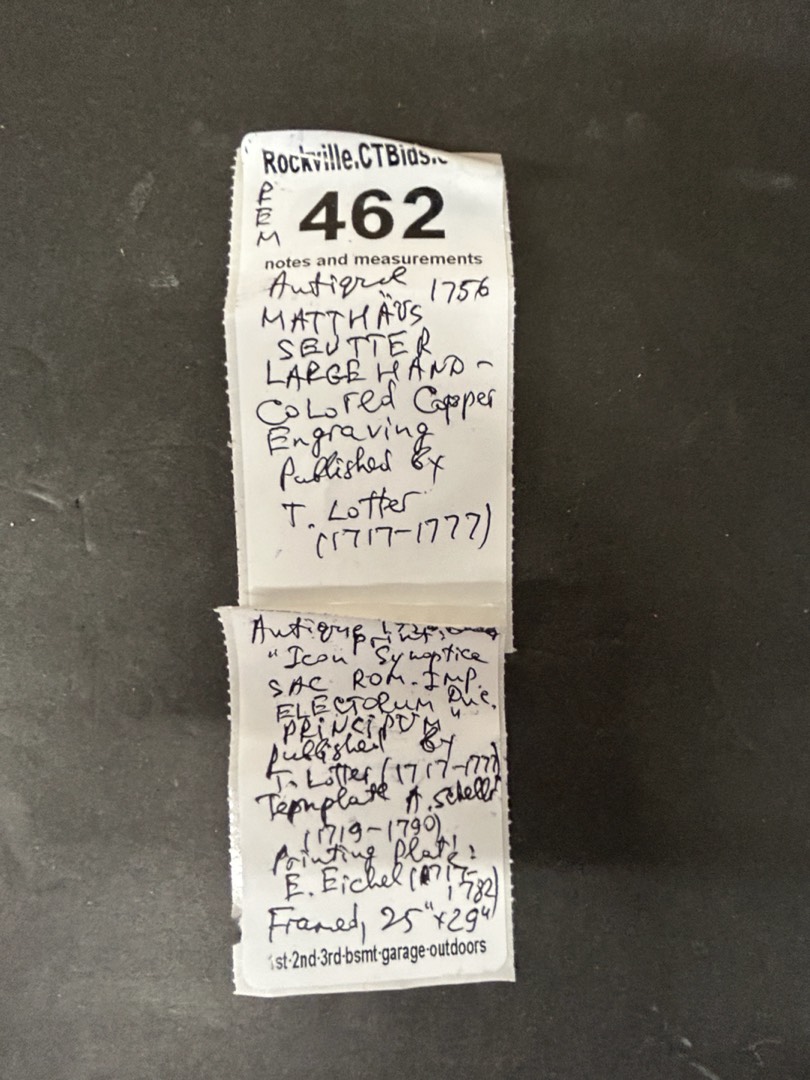 Rockville.CTBids.
PEM
462
notes and measurements
Antique 1756
MATTHÄUS
SEUTTER
LARGE HAND-
Colored Copper
Engraving
Published by
T. Lotter
(1717-1777)
Antique print,
"Icon Synoptica
SAC ROM. IMP.
ELECTORUM Duc.
PRINCIPUM"
published by
T. Lotter (1717-1777)
Template A.
(1719-1790)
Printing Plate:
E. Eichel (1717-
1782)
Framed, 25"x29"
1st-2nd-3rd-bsmt-garage-outdoors